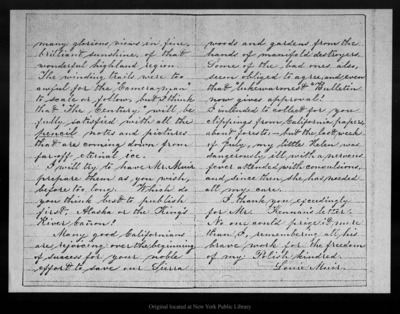 many glorious views in fine,
brilliant sunshine, of that
wonderful highland region.
The winding trails were too
awful for the "Camera man"
to scale or follow, but I think
that "The Century" will be
fully satisfied with all the
pencil notes and pictures
that are coming down from
far-off eternal ice.
I will try to have Mr. Muir
prepare them as you wish,
before too long. Which do
you think best to publish
first, Alaska or the King's
River Cañon?
Many good Californians
are rejoicing over the beginning
of success for your noble
effort to save our Sierra
woods and gardens from the
hands of manifold destroyers.
Some of the bad ones, also,
seem obliged to agree, and even
that lukewarmest "Bulletin"
now gives approval.
I intended to collect for you
clippings from California papers
about forests,— but the last week
of July, my little Helen was
dangerously ill with a nervous
fever attended with convulsions,
and, since then she has needed
all my care.
I thank you exceedingly
for Mr. Kennan's letter.
No one could prize it more
than I, remembering all his
brave work for the freedom
of my Polish kindred.
Louie Muir.
Original located at New York Public Library